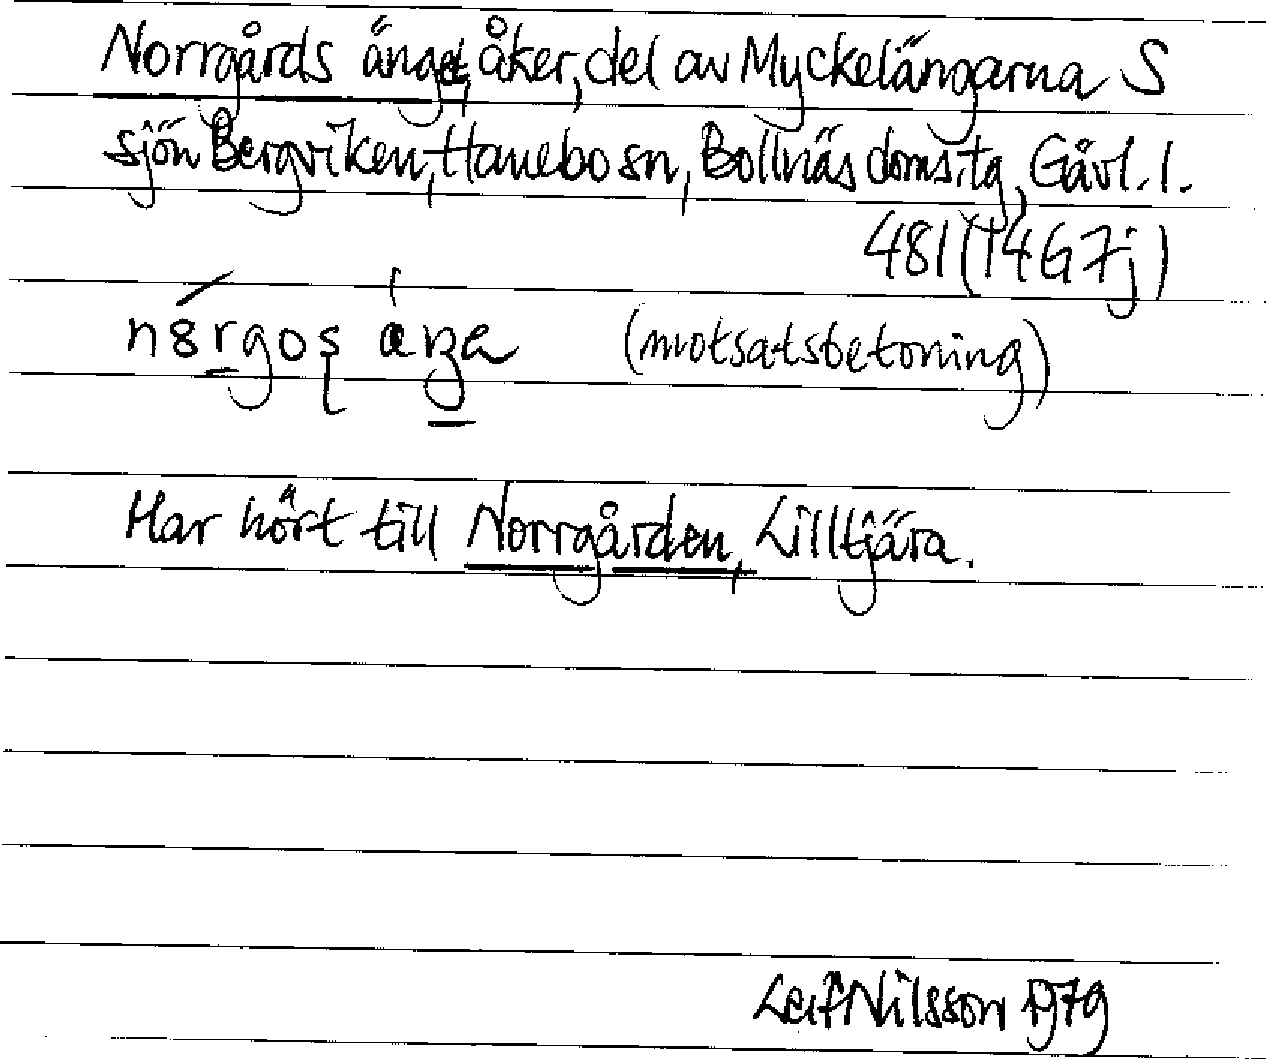 Norrgårds änget, åker, del av Myckelängarna S
sjön Bergviken, Hanebo sn, Bollnäs doms.tg, Gävl. l.
481 (14G7j)
(motsatsbetoning)
Har hört till Norrgården, Lilltjära.
Leif Nilsson 1979